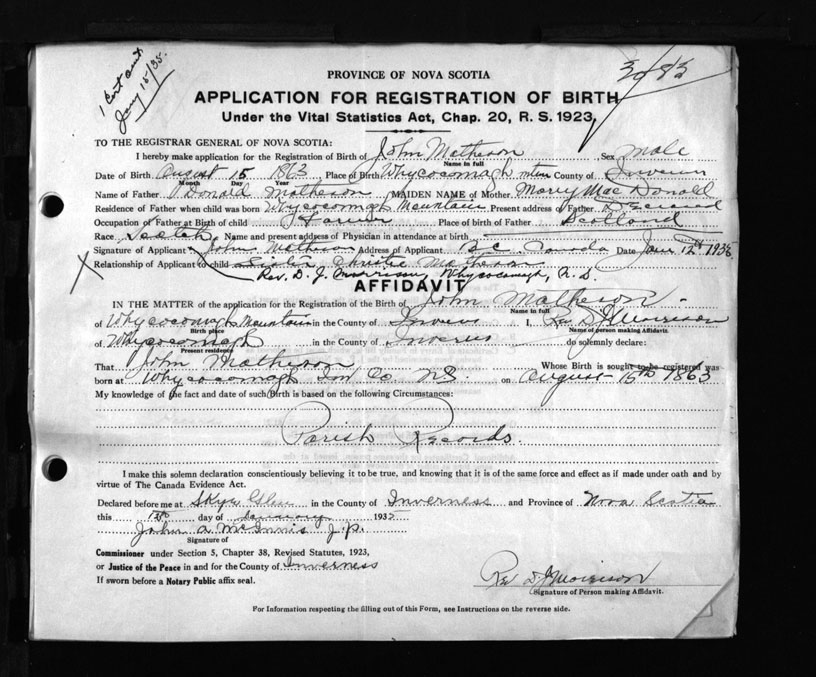 1 Cert sent
Jany 15/35
3083
PROVINCE OF NOVA SCOTIA
APPLICATION FOR REGISTRATION OF BIRTH
Under the Vital Statistics Act, Chap. 20, R. S. 1923,
TO THE REGISTRAR GENERAL OF NOVA SCOTIA:
I hereby make application for the Registration of Birth of John Matheson Sex male
Name in full
Date of Birth August 15 1863 Place of Birth Whycocomagh mtn County of Inverness
Month Day Year
Name of Father Donald Matheson MAIDEN NAME of Mother Mary MacDonald
Residence of Father when child was born Whycocomagh Mountain Present address of Father Deceased
Occupation of Father at Birth of child Farmer Place of Birth of Father Scotland
Race Scotch Name and present address of Physician in attendance at birth
Signature of Applicant John Matheson Address of Applicant B.C. Canada Date Jan 12th
Relationship of Applicant to child Sister Christie Matheson
Rev. D. J. Morrison, Whycocomagh, N. S.
AFFIDAVIT
IN THE MATTER of the application for the Registration of the Birth of John Matheson
Name in full
of Whycocomagh Mountain in the County of Inverness I, Rev D J Morrison
Birth place Name of person making Affidavit.
of Whycocomagh in the County of Inverness do solemnly declare:
Present residence
That John Matheson Whose Birth is sought to be registered was
born at Whycocomagh Inv Co. N.S. on August 15th 1863
My knowledge of the fact and date of such Birth is based on the following Circumstances:
Parish Records.
I make this solemn declaration conscientiously believing it to be true, and knowing that it is of the same force and effect as if made under oath and by
virtue of The Canada Evidence Act.
Declared before me at Skye Glen in the County of Inverness and Province of Nova Scotia
this 12th day of January 1935
John A McInnis J.P.
Signature of
Commissioner under Section 5, Chapter 38, Revised Statutes, 1923,
or Justice of the Peace in and for the County of Inverness
If sworn before a Notary Public affix seal.
Rev D J Morrison
Signature of Person making Affidavit.
For Information respecting the filling out of this Form, see Instructions on the reverse side.